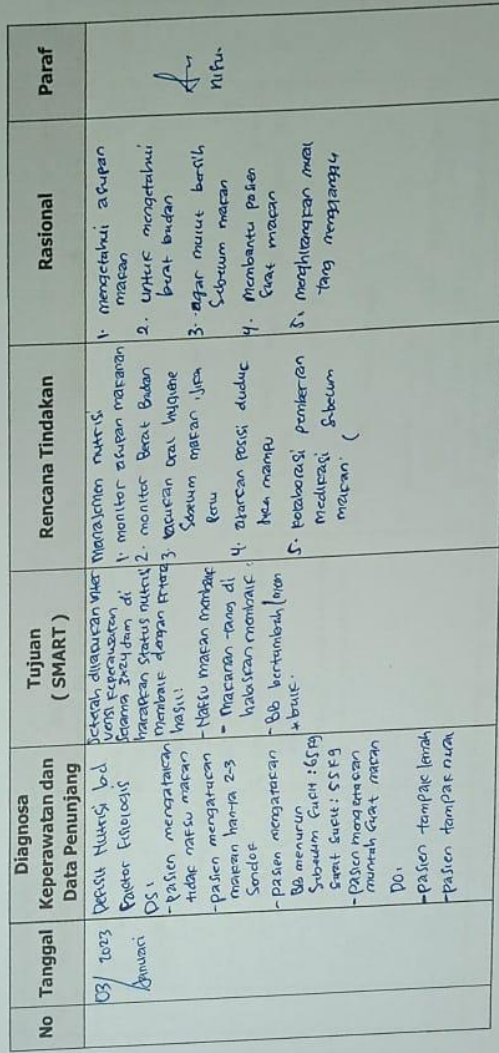 No
Tanggal
Diagnosa
Keperawatan dan
Data Penunjang
Tujuan
( SMART )
Rencana Tindakan
Rasional
Paraf
03/ 2023
Januari
Defisit Nutrisi bd
Faktor Fisiologis
DS:
- pasien mengatakan
tidak nafsu makan
- pasien mengatakan
makan hanya 2-3
Sendok
- pasien mengatakan
BB menurun
Sebelum sakit : 65 kg
saat sakit : 55 kg
- pasien mengatakan
muntah saat makan
DO:
- pasien tampak lemah
- pasien tampak mual
Setelah dilakukan inter
vensi keperawatan
selama 3x24 jam di
harapkan status nutrisi
membaik dengan kriteria
hasil:
- Nafsu makan membaik
- makanan yang di
habiskan membaik.
- BB bertambah / mem
baik.
Manajemen nutrisi
1. monitor asupan makanan
2. monitor Berat Badan
3. lakukan oral hygiene
Sebelum makan, jika
Perlu
4. ajarkan posisi duduk
jika mampu
5. kolaborasi pemberian
medikasi sebelum
makan.
1. mengetahui asupan
makan
2. untuk mengetahui
berat badan
3. agar mulut bersih
Sebelum makan
4. Membantu pasien
saat makan
5. menghilangkan mual
yang mengganggu